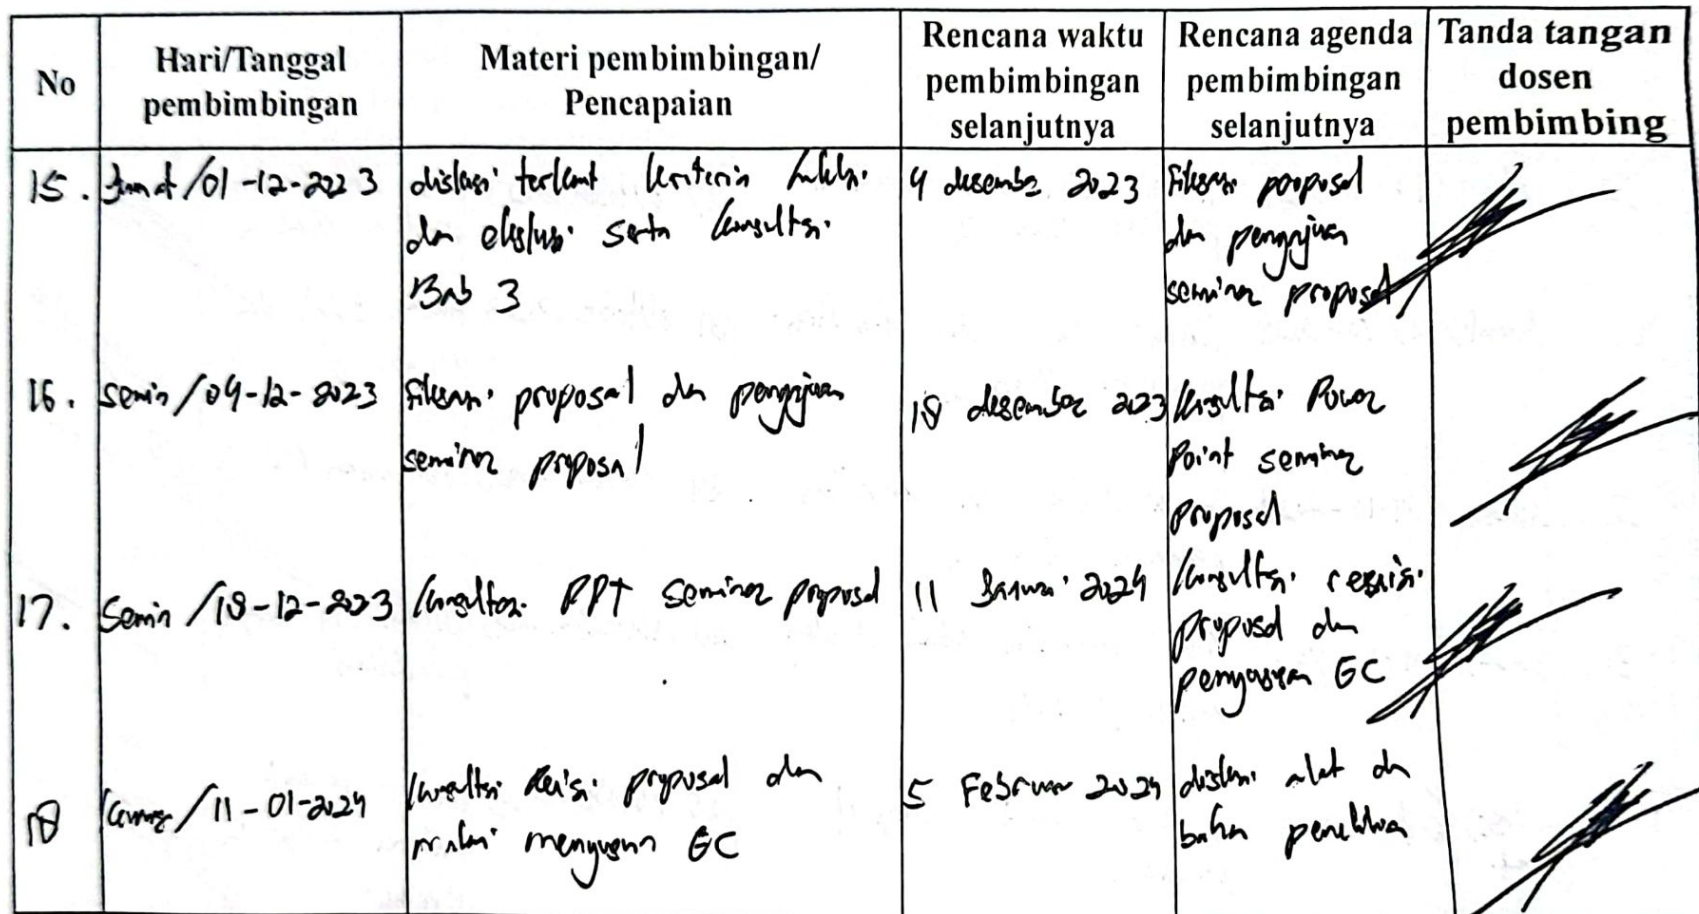 No
Hari/Tanggal
pembimbingan
Materi pembimbingan/
Pencapaian
Rencana waktu
pembimbingan
selanjutnya
Rencana agenda
pembimbingan
selanjutnya
Tanda tangan
dosen
pembimbing
15. Jumat/01-12-2023
diskusi terkait kriteria inklusi
dan eksklusi serta konsultasi
Bab 3
4 desember 2023
Fiksasi proposal
dan pengajuan
seminar proposal
16. Senin/04-12-2023
Fiksasi proposal dan pengajuan
seminar proposal
18 desember 2023
konsultasi Power
Point seminar
proposal
17. Senin/18-12-2023
konsultasi PPT seminar proposal
11 Januari 2024
konsultasi revisi
proposal dan
penyusunan EC
18 Kamis/11-01-2024
konsultasi Revisi proposal dan
mulai menyusun EC
5 Februari 2024
diskusi alat dan
bahan penelitian